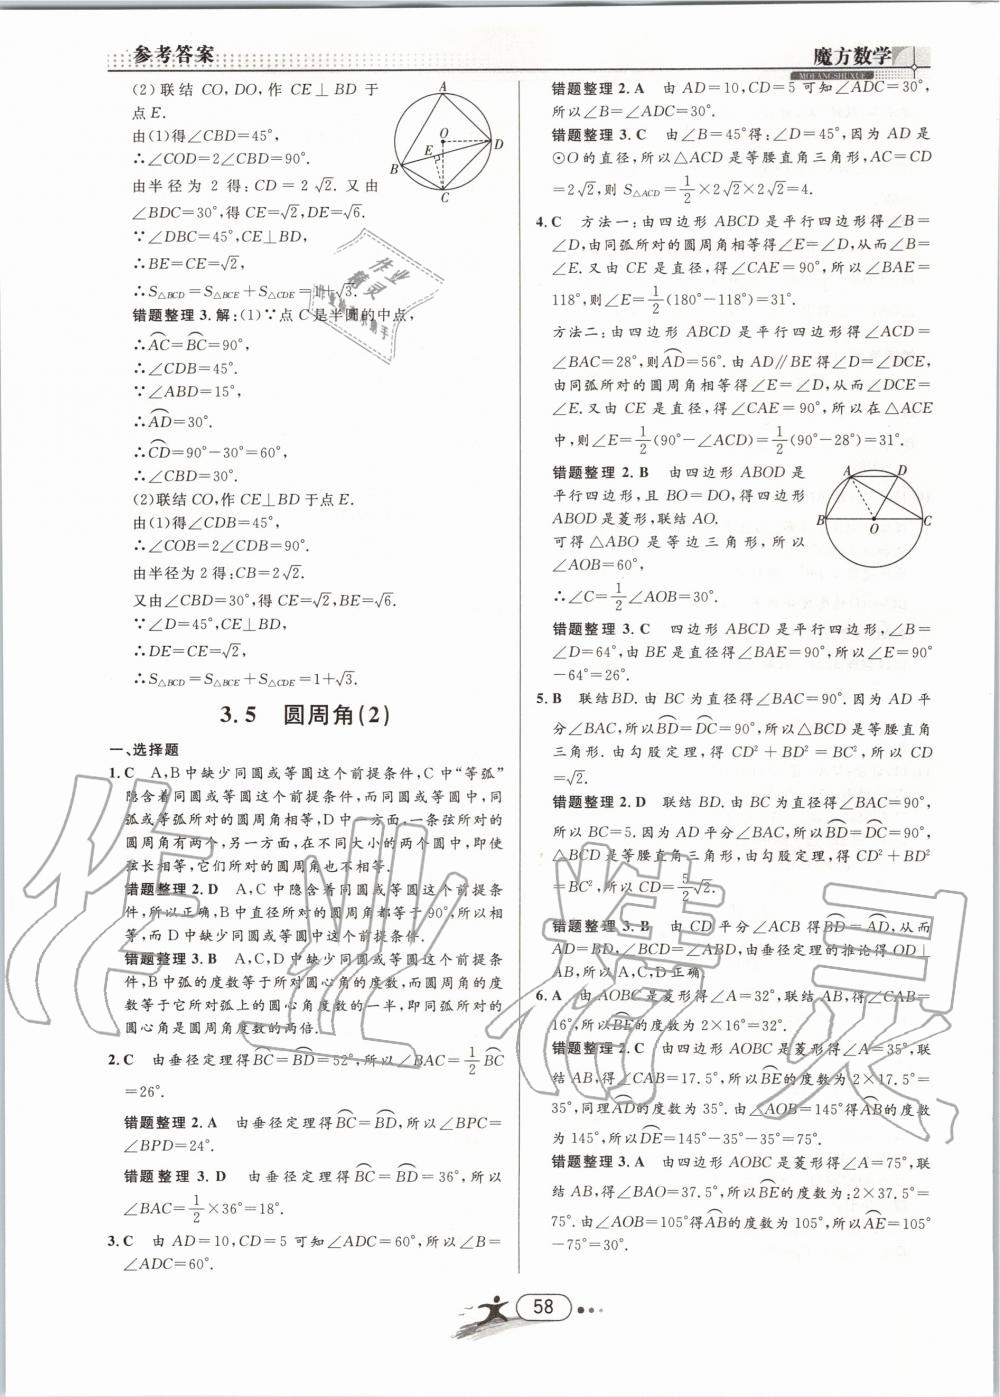 参考答案
魔方数学
MOFANGSHUXUE
(2)联结 CO,DO,作 CE⊥BD 于
点 E.
由(1)得∠CBD=45°,
∴∠COD=2∠CBD=90°.
由半径为 2 得:CD=2√2.又由
∠BDC=30°,得 CE=√2,DE=√6.
∵∠DBC=45°,CE⊥BD,
∴BE=CE=√2,
∴S△BCD=S△BCE+S△CDE=1+√3.
错题整理 3.解:(1)∵点 C 是半圆的中点,
∴A͡C=B͡C=90°,
∴∠CDB=45°.
∵∠ABD=15°,
∴A͡D=30°.
∴C͡D=90°-30°=60°,
∴∠CBD=30°.
(2)联结 CO,作 CE⊥BD 于点 E.
由(1)得∠CDB=45°,
∴∠COB=2∠CDB=90°.
由半径为 2 得:CB=2√2.
又由∠CBD=30°,得 CE=√2,BE=√6.
∵∠D=45°,CE⊥BD,
∴DE=CE=√2,
∴S△BCD=S△BCE+S△CDE=1+√3.
A
O
E
D
B
C
3.5 圆周角(2)
一、选择题
1.C A,B 中缺少同圆或等圆这个前提条件,C 中“等弧”
隐含着同圆或等圆这个前提条件,而同圆或等圆中,同
弧或等弧所对的圆周角相等,D 中一方面,一条弦所对的
圆周角有两个,另一方面,在不同大小的两个圆中,即使
弦长相等,它们所对的圆周角也不相等.
错题整理 2.D A,C 中隐含着同圆或等圆这个前提条件,
所以正确,B 中直径所对的圆周角都等于 90°,所以相
等,而 D 中缺少同圆或等圆这个前提条件.
错题整理 3.B A,C,D 中缺少同圆或等圆这个前提条
件,B 中弧的度数等于所对圆心角的度数,而圆周角的度
数等于它所对弧上的圆心角度数的一半,即同弧所对的
圆心角是圆周角度数的两倍.
2.C 由垂径定理得B͡C=B͡D=52°,所以∠BAC=1/2 B͡C
=26°.
错题整理 2.A 由垂径定理得B͡C=B͡D,所以∠BPC=
∠BPD=24°.
错题整理 3.D 由垂径定理得B͡C=B͡D=36°,所以
∠BAC=1/2×36°=18°.
3.C 由 AD=10,CD=5 可知∠ADC=60°,所以∠B=
∠ADC=60°.
错题整理 2.A 由 AD=10,CD=5 可知∠ADC=30°,
所以∠B=∠ADC=30°.
错题整理 3.C 由∠B=45°得:∠D=45°,因为 AD 是
⊙O 的直径,所以△ACD 是等腰直角三角形,AC=CD
=2√2,则 S△ACD=1/2×2√2×2√2=4.
4.C 方法一:由四边形 ABCD 是平行四边形得∠B=
∠D,由同弧所对的圆周角相等得∠E=∠D,从而∠B=
∠E.又由 CE 是直径,得∠CAE=90°,所以∠BAE=
118°,则∠E=1/2(180°-118°)=31°.
方法二:由四边形 ABCD 是平行四边形得∠ACD=
∠BAC=28°,则A͡D=56°.由 AD∥BE 得∠D=∠DCE,
由同弧所对的圆周角相等得∠E=∠D,从而∠DCE=
∠E.又由 CE 是直径,得∠CAE=90°,所以在△ACE
中,则∠E=1/2(90°-∠ACD)=1/2(90°-28°)=31°.
错题整理 2.B 由四边形 ABOD 是
平行四边形,且 BO=DO,得四边形
ABOD 是菱形,联结 AO.
可得△ABO 是等边三角形,所以
∠AOB=60°,
∴∠C=1/2∠AOB=30°.
A
D
B
O
C
错题整理 3.C 四边形 ABCD 是平行四边形,∠B=
∠D=64°,由 BE 是直径得∠BAE=90°,所以∠E=90°
-64°=26°.
5.B 联结BD.由 BC 为直径得∠BAC=90°.因为 AD 平
分∠BAC,所以B͡D=D͡C=90°,所以△BCD 是等腰直角
三角形.由勾股定理,得 CD²+BD²=BC²,所以 CD
=√2.
错题整理 2.D 联结 BD.由 BC 为直径得∠BAC=90°,
所以 BC=5.因为 AD 平分∠BAC,所以B͡D=D͡C=90°,
△BCD 是等腰直角三角形,由勾股定理,得 CD²+BD²
=BC²,所以 CD=5/2√2.
错题整理 3.B 由 CD 平分∠ACB 得B͡D=A͡D,从而
AD=BD,∠BCD=∠ABD,由垂径定理的推论得 OD⊥
AB,所以 A,C,D 正确.
6.A 由 AOBC 是菱形得∠A=32°,联结 AB,得∠CAB=
16°,所以B͡E的度数为 2×16°=32°.
错题整理 2.C 由四边形 AOBC 是菱形得∠A=35°,联
结 AB,得∠CAB=17.5°,所以B͡E的度数为 2×17.5°=
35°,同理A͡D的度数为 35°.由∠AOB=145°得A͡B的度数
为 145°,所以D͡E=145°-35°-35°=75°.
错题整理 3.A 由四边形 AOBC 是菱形得∠A=75°,联
结 AB,得∠BAO=37.5°,所以B͡E的度数为:2×37.5°=
75°.由∠AOB=105°得A͡B的度数为 105°,所以A͡E=105°
-75°=30°.
58
作业精灵
作业精灵